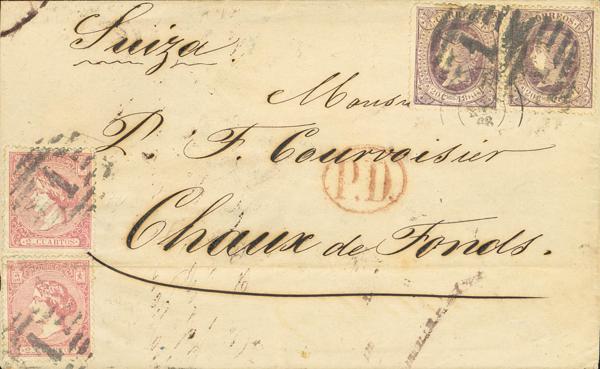 Suiza.
Monsr
P. F. Courvoisier
P.D.
Chaux de Fonds.
CORREOS
CORREOS
2 CUARTOS
2 CUARTOS